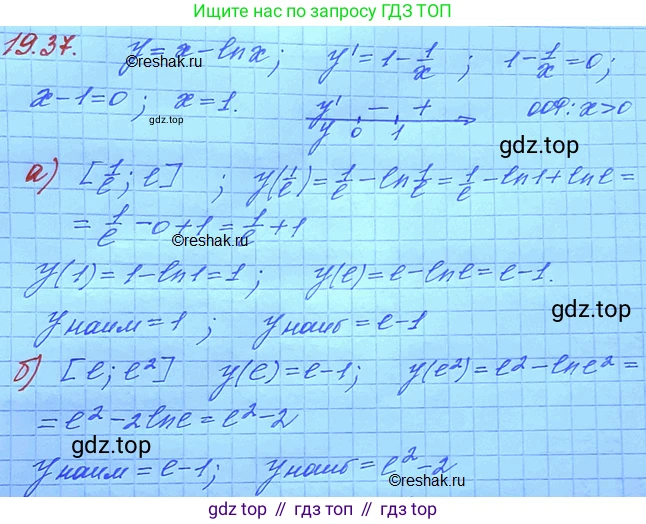 Ищите нас по запросу ГДЗ ТОП
19.37. y = x - ln x ; y' = 1 - 1/x ; 1 - 1/x = 0 ;
©reshak.ru
x - 1 = 0 ; x = 1. y' - + ООФ: x > 0
y 0 1
gdz.top
gdz.top
а) [1/e ; e] ; y(1/e) = 1/e - ln 1/e = 1/e - ln1 + ln e =
= 1/e - 0 + 1 = 1/e + 1
©reshak.ru
y(1) = 1 - ln1 = 1 ; y(e) = e - ln e = e - 1.
gdz.top
y наим = 1 ; y наиб = e - 1
б) [e ; e²] y(e) = e - 1 ; y(e²) = e² - ln e² =
= e² - 2 ln e = e² - 2
gdz.top
y наим = e - 1 ; y наиб = e² - 2
©reshak.ru
gdz.top // gdz.top // gdz.top // gdz.top